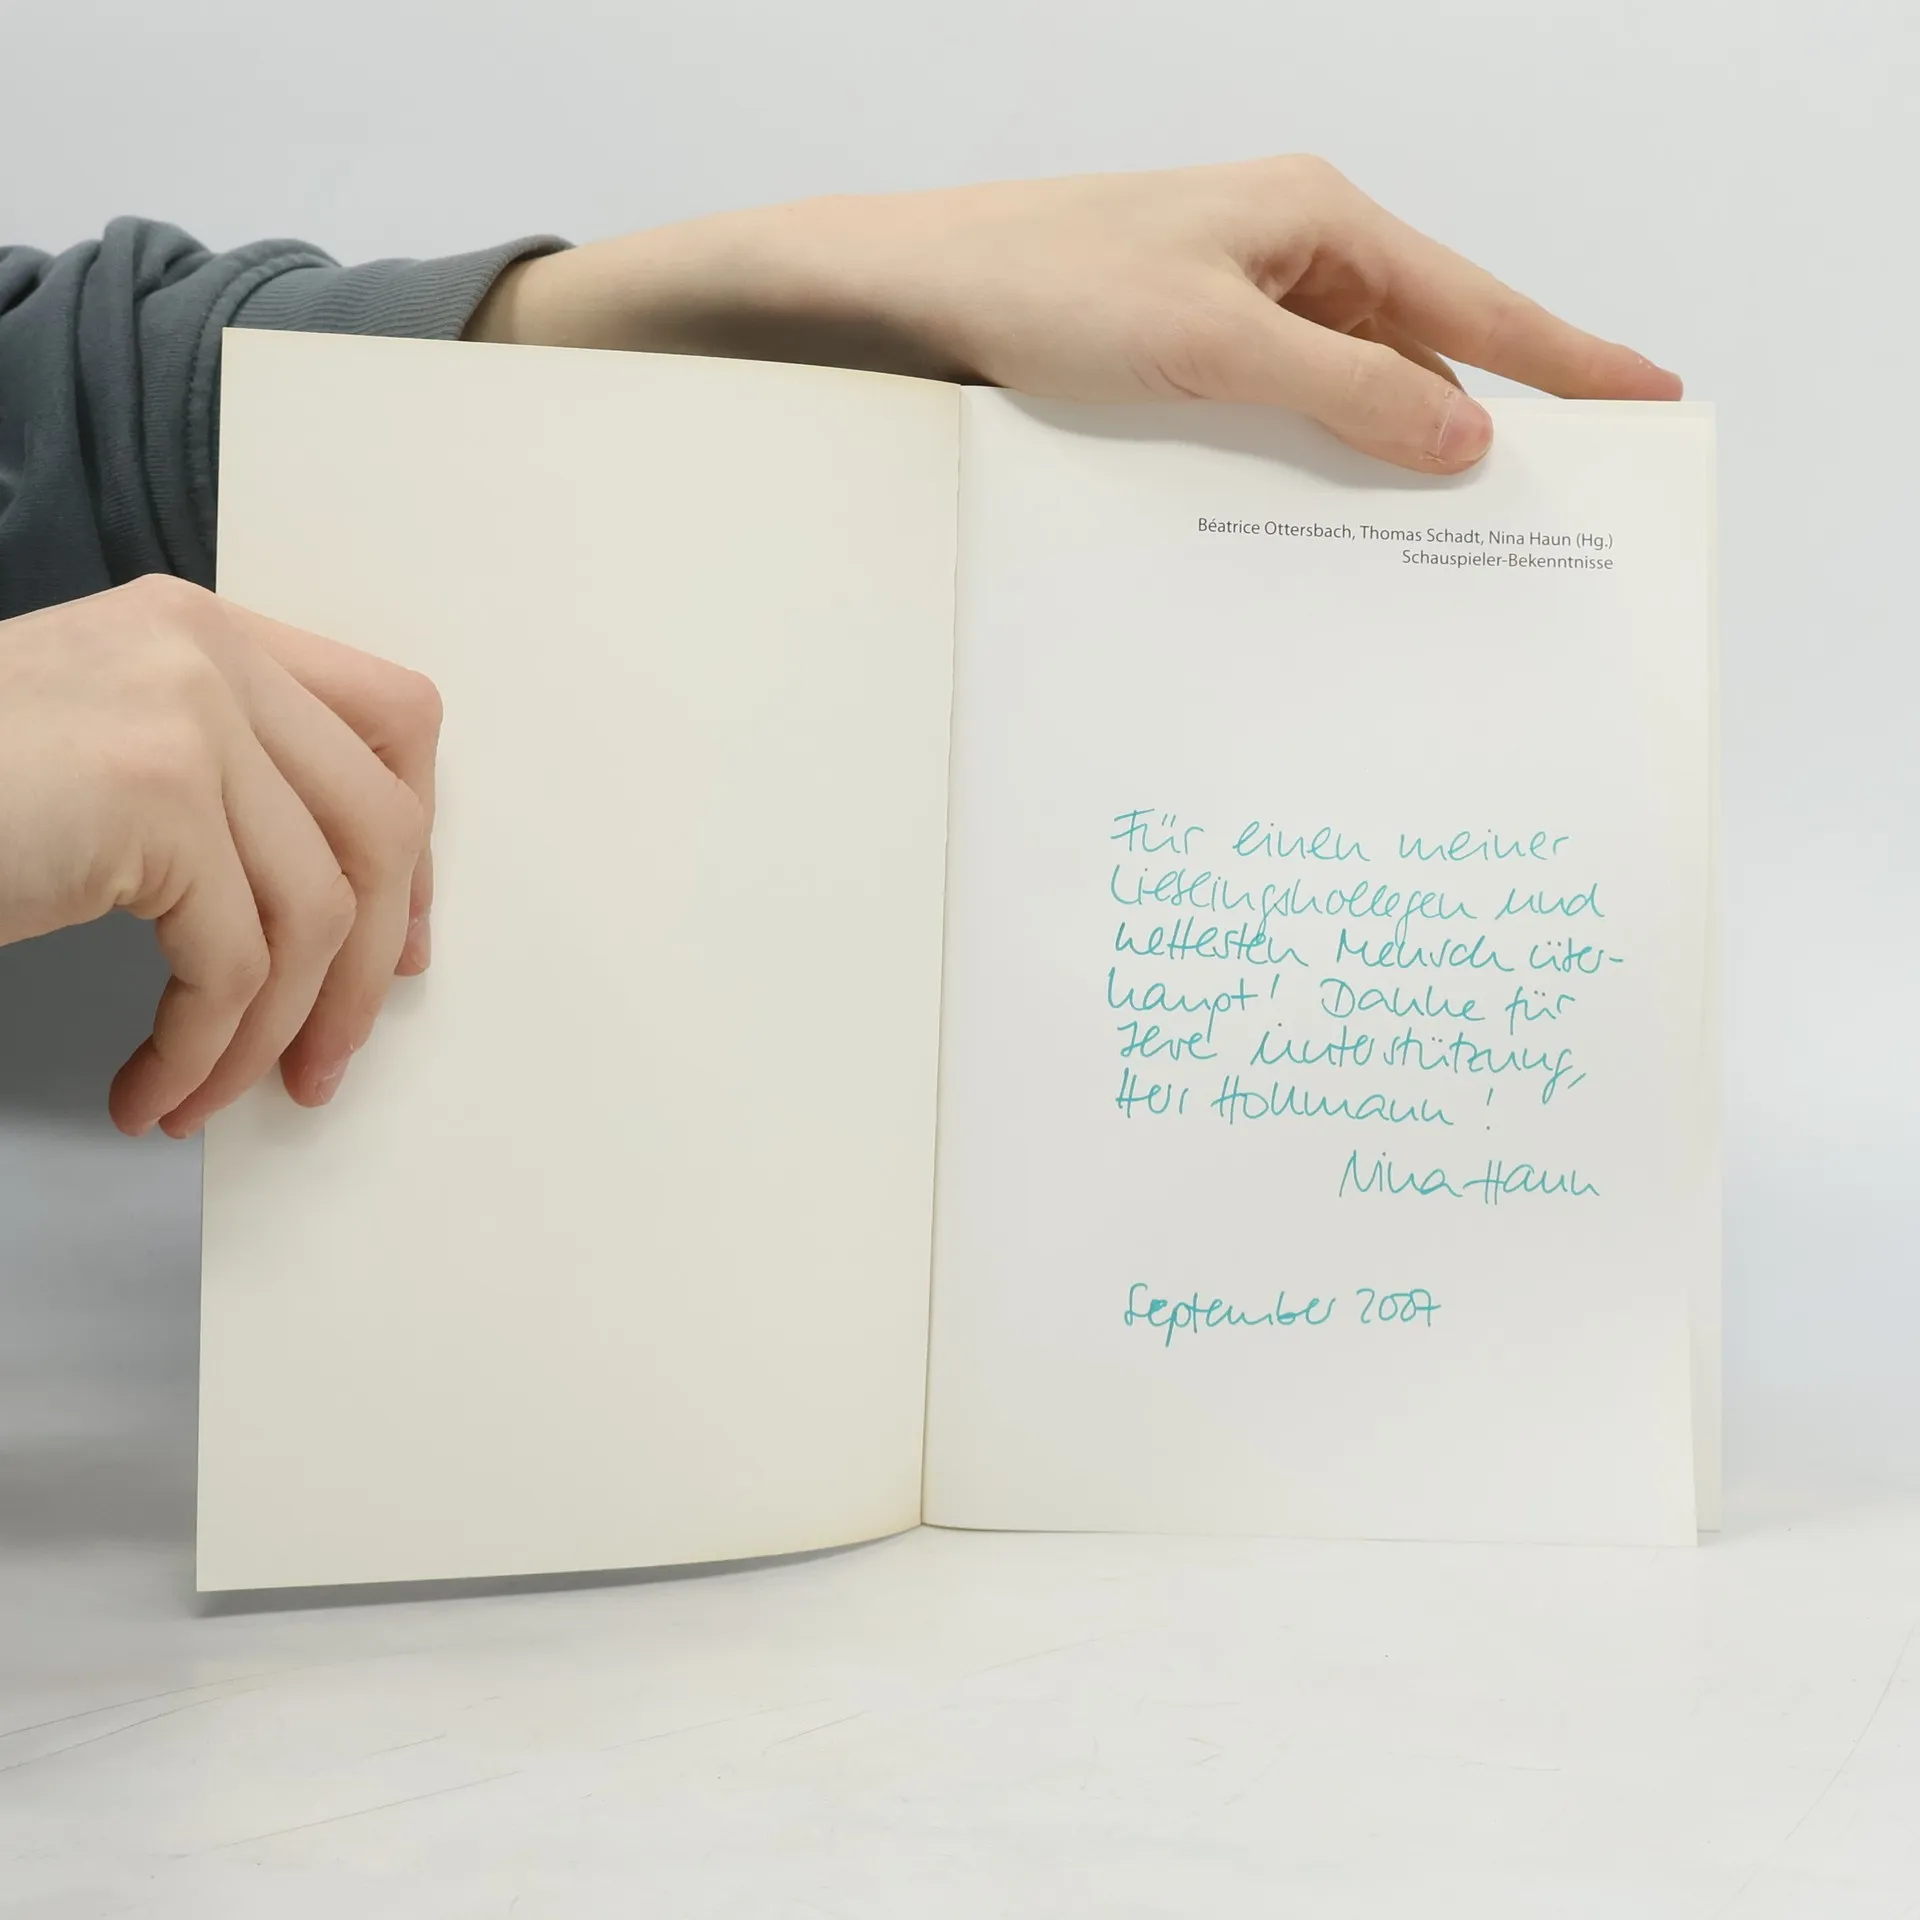 Béatrice Ottersbach, Thomas Schadt, Nina Haun (Hg.)
Schauspieler-Bekenntnisse
Für einen meiner
Lieblingskollegen und
nettesten Mensch über-
haupt! Danke für
Ihre Unterstützung,
Herr Hollmann!
Nina Haun
September 2007